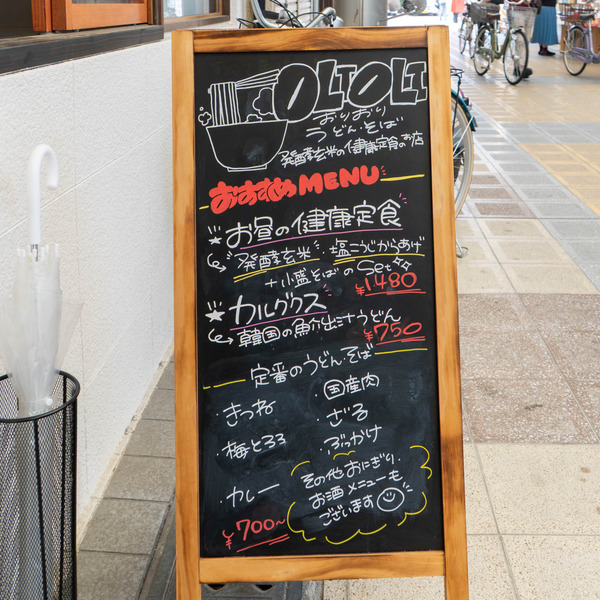 OLIOLI
おりおり
うどん・そば
発酵玄米の健康定食のお店
おすすめMENU
お昼の健康定食
発酵玄米・塩こうじからあげ
+小盛そばのSet
¥1,480
カルグクス
韓国の魚介出汁うどん
¥750
定番のうどん・そば
・きつね
・梅とろろ
・カレー
・国産肉
・ざる
・ぶっかけ
¥700~
その他おにぎり・
お酒メニューも
ございます